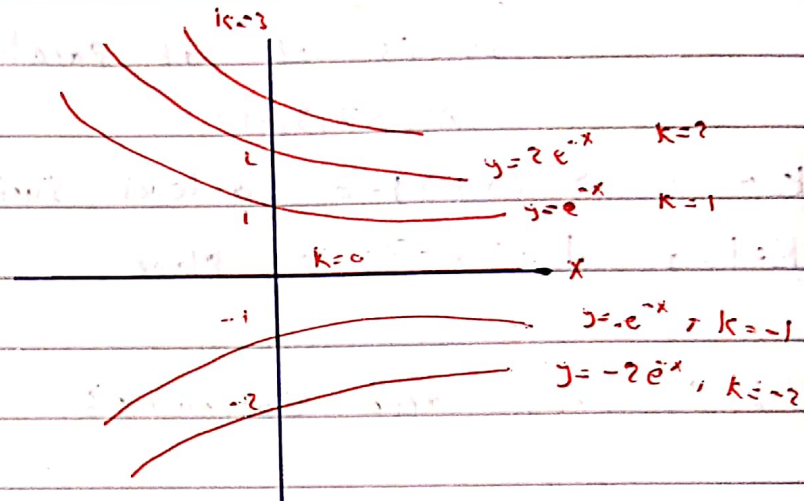 k=3
2
y=2e^-x k=2
1
y=e^-x k=1
k=0
x
-1
y=-e^-x, k=-1
y=-2e^-x, k=-2
-2